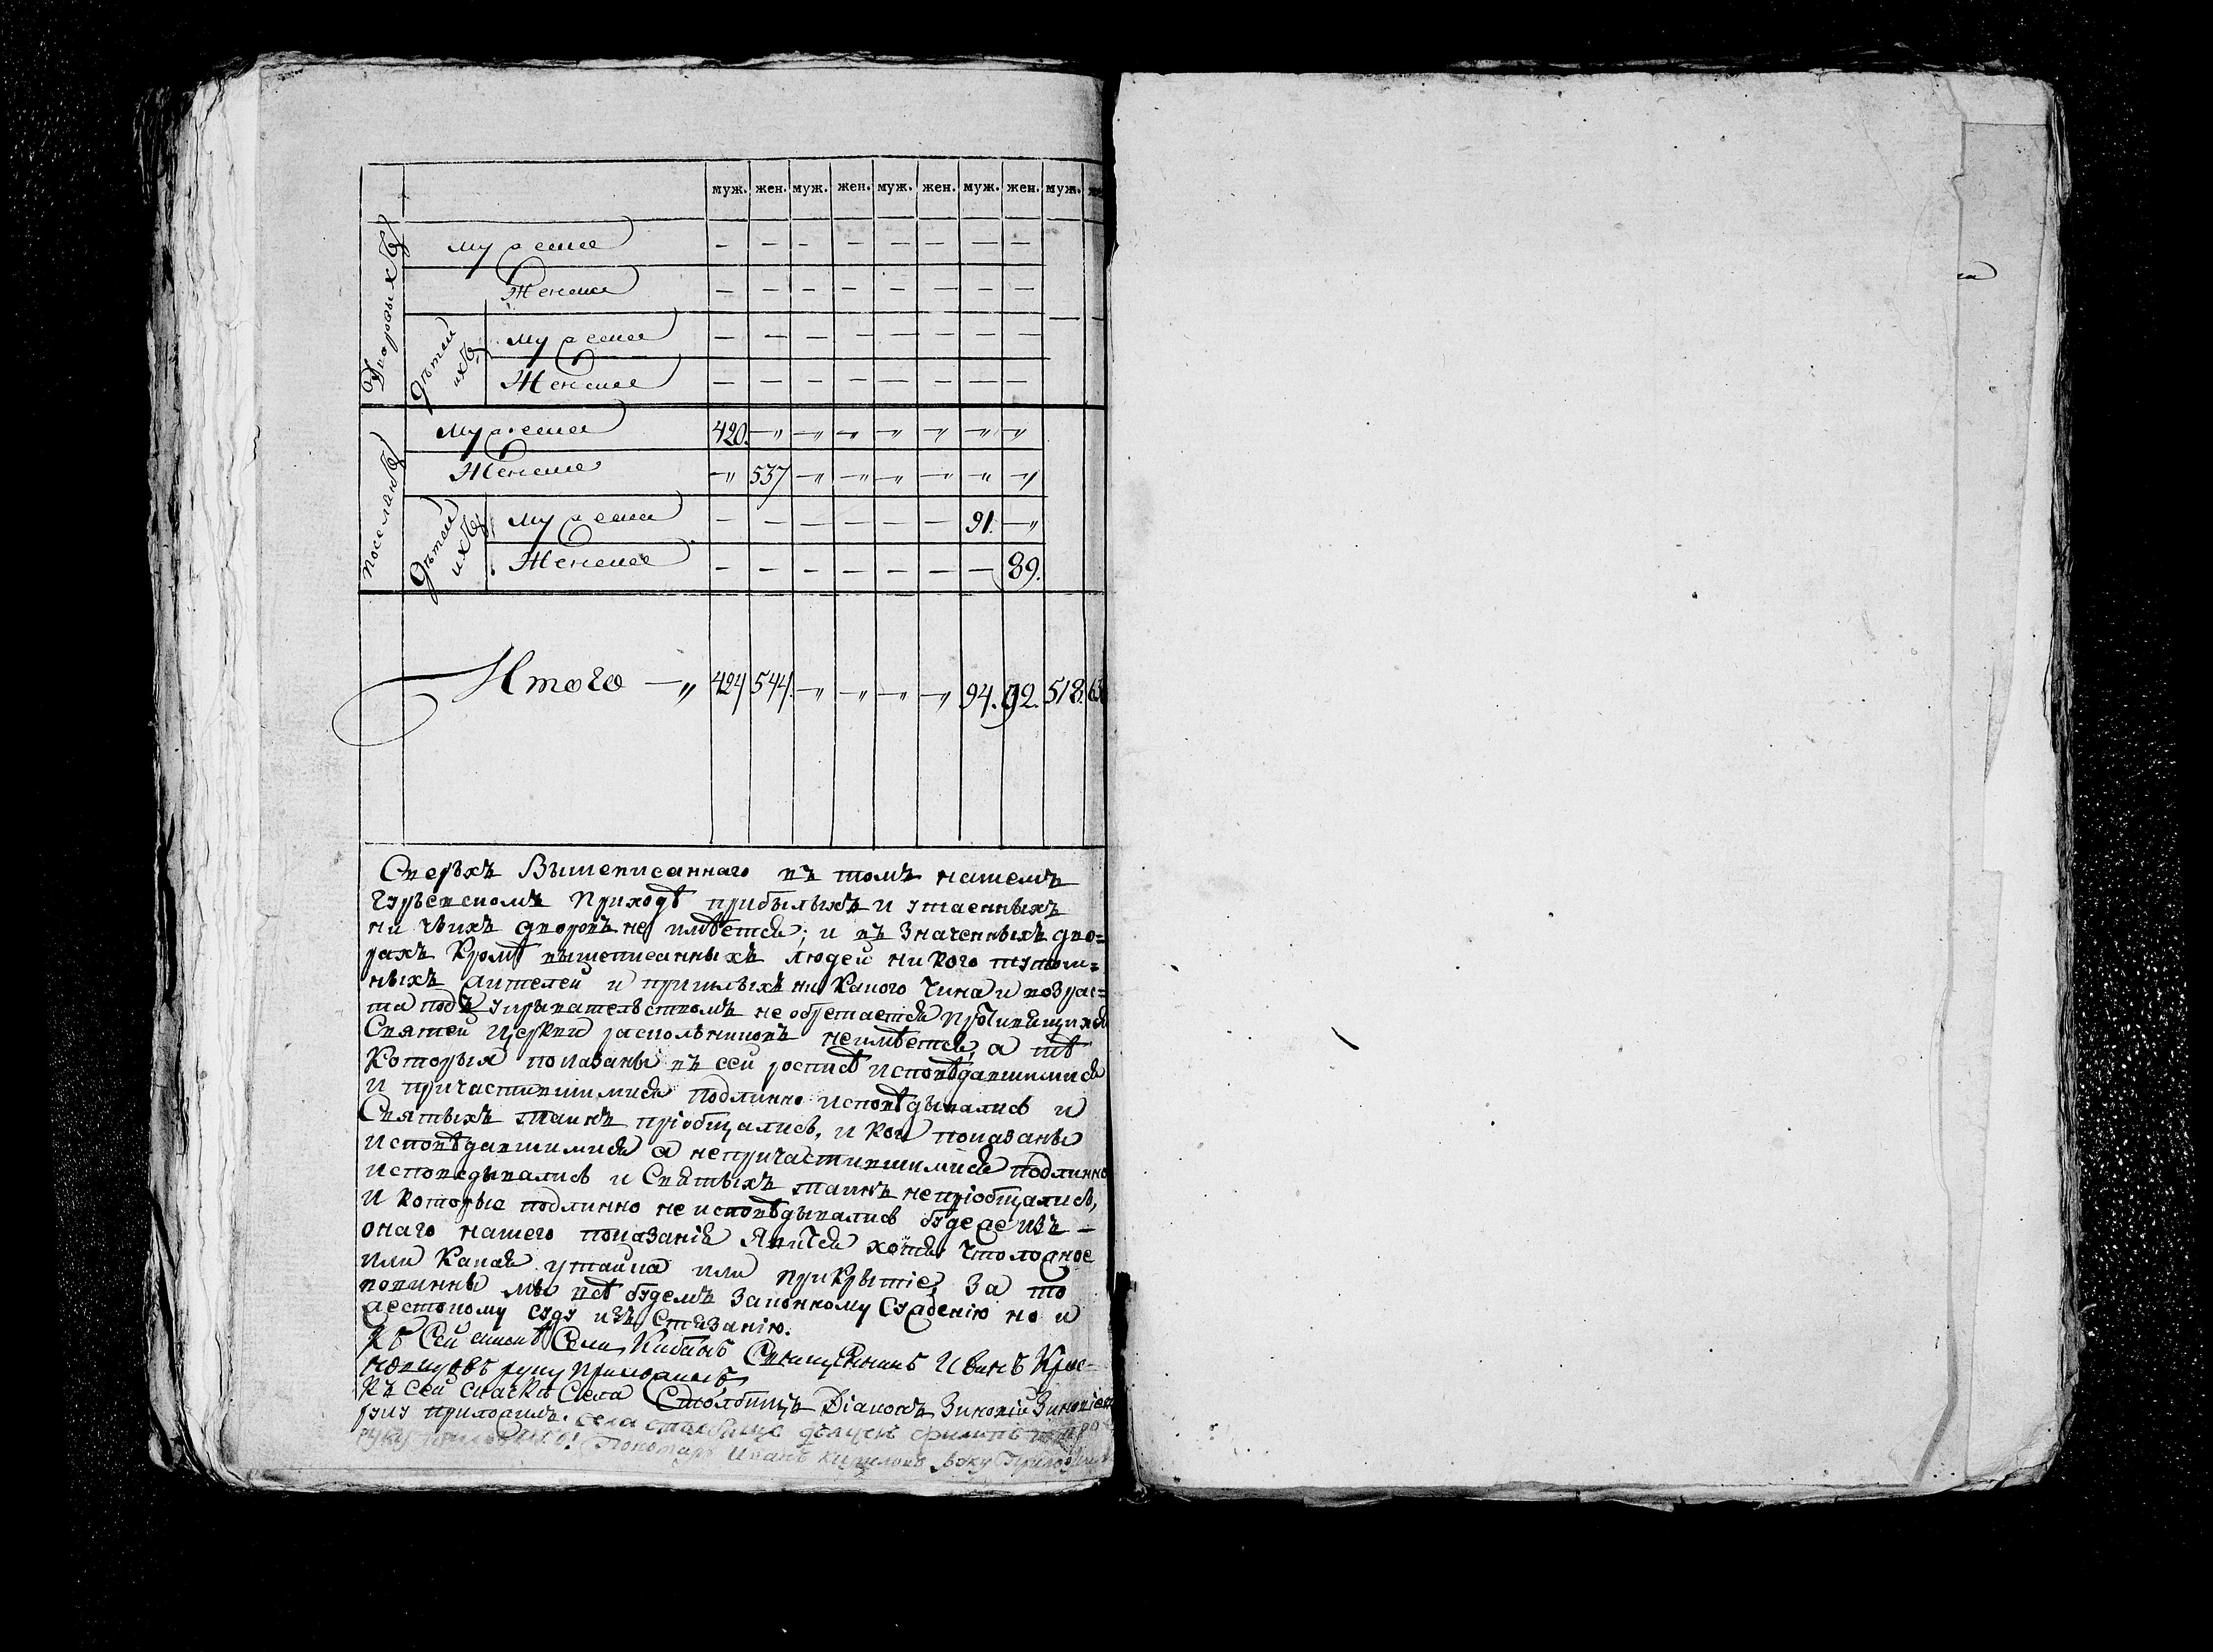 муж. жен. муж. жен. муж. жен. муж. жен. муж.
Дворовыхъ
мужеска — — — — — — — —
Женска — — — — — — — —
дѣтей ихъ
мужеска — — — — — — — —
Женска — — — — — — — —
поселянъ
мужеска 420. —„ —„ —„ —„ —„ —„ —„
Женска —„ 537 —„ —„ —„ —„ —„ —„
дѣтей ихъ
мужеска — — — — — — 91. —„
Женска — — — — — — — 89.
Итого —„ 424 544. —„ —„ —„ —„ 94. 92. 518.
Сверьхъ Вышеписаннаго въ томъ нашемъ
Приходѣ прибылыхъ и утаенныхъ
ни чьихъ дворовъ не имѣется; и въ значенныхъ дво=
рахъ Кромѣ вышеписанныхъ людей ни кого тутош=
ныхъ жителей и пришлыхъ ни какого чина и возрас=
та подъ укрывательствомъ не обретается противящихся
Святей церкви раскольниковъ неимѣется, а тѣ
Которыя показаны въ сей росписѣ исповѣдавшимися
и причастившимися подлинно исповѣдывались и
Святыхъ таинъ пріобщались, и кои показаны
исповѣдавшимися а непричастившимися подлинно
исповедывались и Святыхъ таинъ непріобщались,
и которые подлинно не исповѣдывались буде же изъ —
онаго нашего показанія явится хотя что ложное
или какая утайка или прикрытіе, за то
повинны мы всѣ будемъ законному сужденію но и
жестокому суду изъ Стязанію.
Къ сей Села Священникъ Иванъ
руку приложилъ
Къ сей скаскѣ Села Столбищъ Діаконъ Зиновій
руку приложилъ. села дьячекъ филипъ
руку приложилъ. Пономарь Иванъ руку Приложилъ